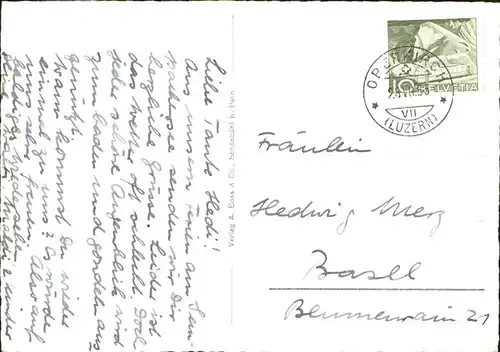 Liebe Tante Hedi!
Aus unseren Ferien am Sem-
pachersee senden wir Dir
herzliche Grüsse. Leider ist
das Wetter oft schlecht. Doch
jeder schöne Augenblick wird
zum baden und gondeln aus-
genutzt.
Wann kommst Du wieder
einmal zu uns? Es würde
uns sehr freuen. Also auf
baldiges Wiedersehen
Kinder
Verlag A. Boss & Co., Schönbühl b. Bern
OBERKIRCH
VII
(LUZERN)
10
HELVETIA
Fräulein
Hedwig Merz
Basel
Blumenrain 21